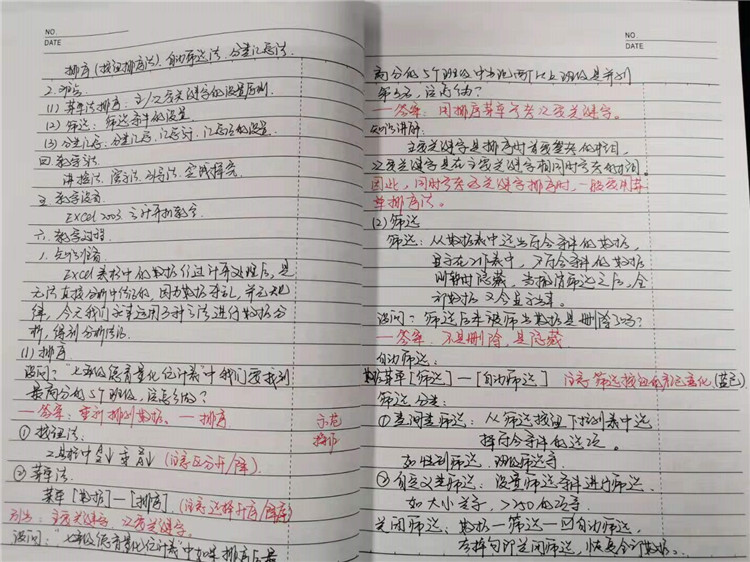 NO.
DATE
排序(按钮排序法)、自动筛选法、分类汇总法.
2. 难点
(1) 菜单法排序:主/次要关键字的设置原则
(2) 筛选:筛选条件的设置
(3) 分类汇总:分类汇总、汇总方式、汇总项的设置.
四. 教学方法
讲授法、演示法、引导法、实践探究
五. 教学设备
EXCEL 2003 计算机教室
六. 教学过程
1. 知识准备
Excel 表格中的数据仅过计算处理后,是
无法直接分析的,因为数据杂乱,并无规
律,今天我们就来运用3种方法进行数据分
析,得到分析结论
(1) 排序
设问:"七年级德育量化统计表"中我们要找到
最高分的5个班级,该怎么做?
—答案:重新排列数据. — 排序
示范
操作
① 按钮法
工具栏中 ↓ ↓ (注意区分升/降).
② 菜单法
菜单[数据]—[排序] (注意选择升序/降序)
主要关键字,次要关键字.
设问:"七年级德育量化统计表"中如果排序后最
NO.
DATE
高分的5个班级中出现两个以上班级是并列
第5名,该如何做?
—答案:用排序菜单考虑次要关键字.
知识讲解:
主要关键字是排序时首要考虑的字段.
次要关键字是在主要关键字相同时考虑的字段.
因此,同时考虑多关键字排序时,一般要用菜
单排序法.
(2) 筛选
筛选:从数据表中选出符合条件的数据,
显示在工作表中,不符合条件的数据
则暂时隐藏,当取消筛选之后,全
部数据又会显示出来.
设问:筛选后未被筛出数据是删除了吗?
—答案:不是删除,是隐藏
自动筛选:
数据菜单[筛选]—[自动筛选] 注意筛选按钮的颜色变化(蓝色)
筛选分类:
① 查询类筛选:从筛选按钮下拉列表中选
择符合条件的选项.
如性别筛选、班级筛选等.
② 自定义类筛选:设置筛选条件进行筛选.
如大小关系,>250 的项等
关闭筛选:数据—筛选—自动筛选,
去掉勾即关闭筛选,恢复全部数据.